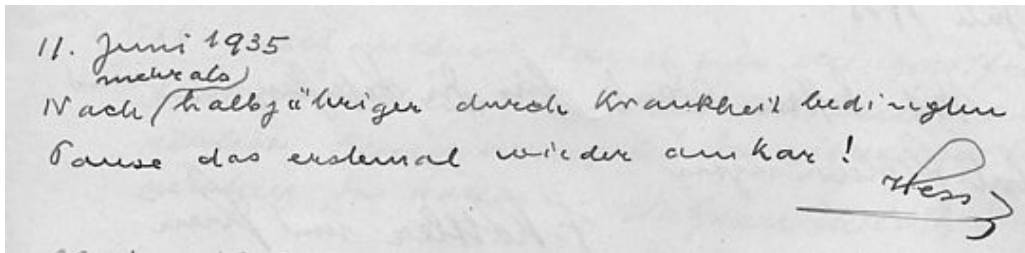 11. Juni 1935
mehr als
Nach halbjähriger durch Krankheit bedingten
Pause das erstemal wieder am Kar!
Hess